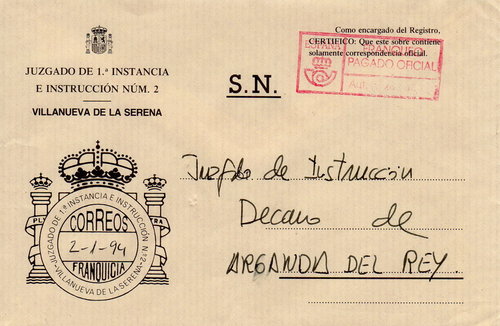 Como encargado del Registro,
CERTIFICO: Que este sobre contiene
solamente correspondencia oficial.
ESPAÑA FRANQUEO
PAGADO OFICIAL
AUT.
JUZGADO DE 1.ª INSTANCIA
E INSTRUCCIÓN NÚM. 2
VILLANUEVA DE LA SERENA
S.N.
JUZGADO DE 1.ª INSTANCIA E INSTRUCCIÓN N.º 2
CORREOS
2-1-94
FRANQUICIA
VILLANUEVA DE LA SERENA
PL TRA
Juzgado de Instrucción
Decano de
ARGANDA DEL REY.